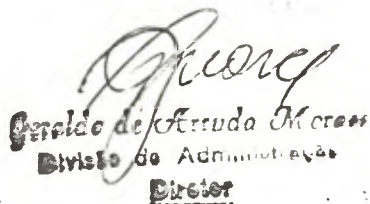 Geraldo de Arruda Moraes
Divisão de Administração
Diretor